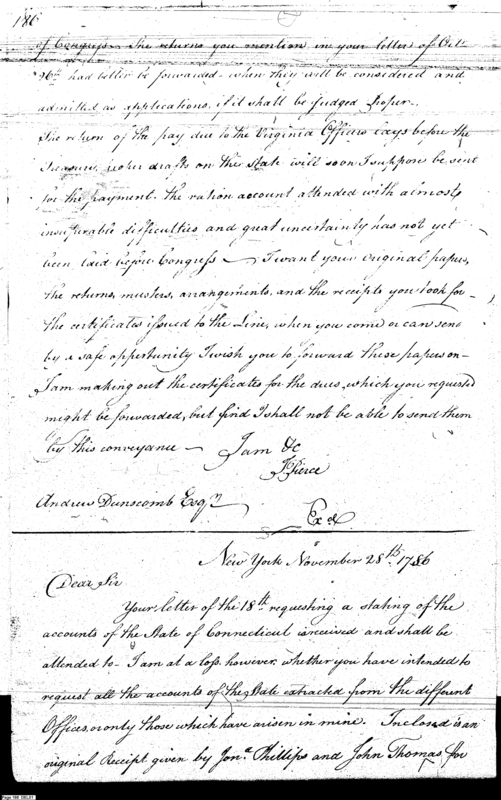 186
of Congress. The returns you mention in your letter of Octr.
26th had better be forwarded - when they will be considered and
admitted as applications, if it shall be judged proper.
The return of the pay due to the Virginia Officers lays before the
Treasury, whose drafts on the State will soon I suppose be sent
for the payment. the ration account attended with almost
insuperable difficulties and great uncertainty has not yet
been laid before Congress — I want your original papers,
the returns, musters, arrangements, and the receipts you took for
the certificates issued to the Line, when you come or can send
by a safe oppertunity I wish you to forward these papers on -
I am making out the certificates for the dues, which you requested
might be forwarded, but find I shall not be able to send them
by this conveyance — I am &c
J Pierce
Andrew Dunscomb Esqr.
Exd
New York November 28th. 1786
Dear Sir
Your letter of the 18th. requesting a stating of the
accounts of the State of Connecticut is received and shall be
attended to - I am at a loss however, whether you have intended to
request all the accounts of the State extracted from the different
Offices, or only those which have arisen in mine. Inclosed is an
original Receipt given by Jona. Phillips and John Thomas for